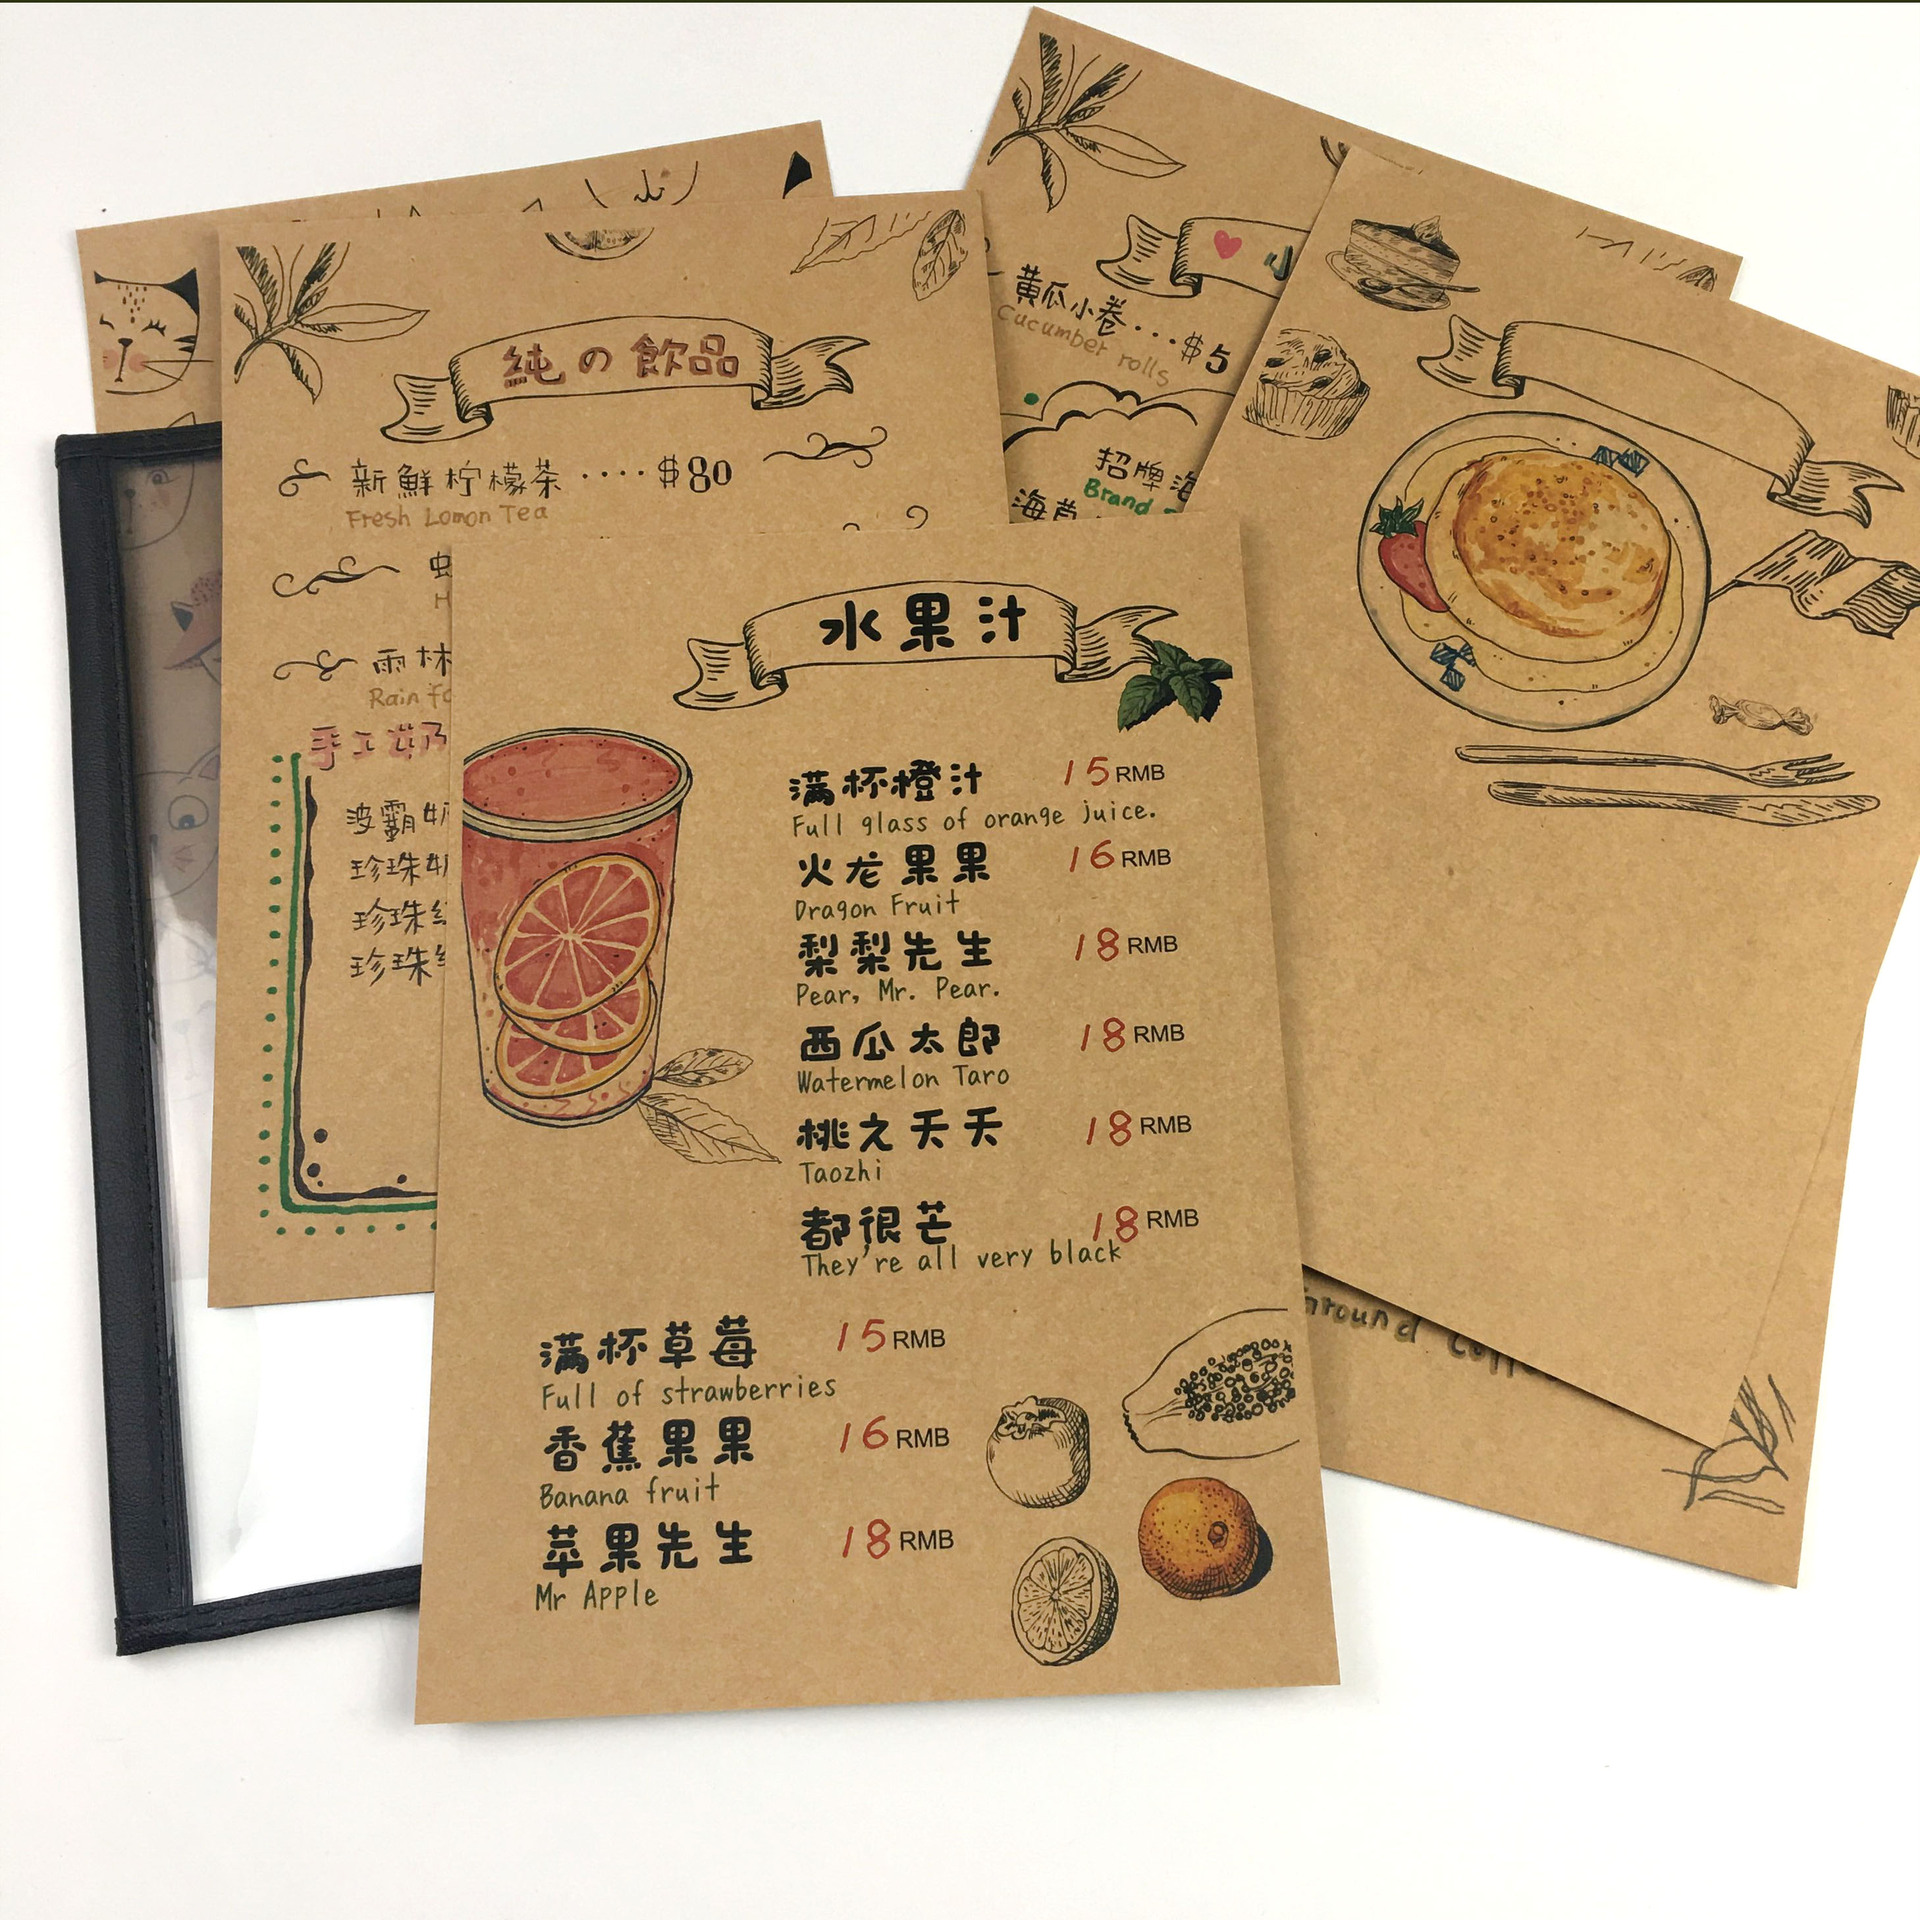 純の飲品
新鮮柠檬茶 ···· $80
Fresh Lomon Tea
雨林
Rain fo
手工奶
波霸奶
珍珠奶
珍珠
珍珠
黄瓜小卷 ··· $5
Cucumber rolls
招牌海
Brand
海苔
水果汁
满杯橙汁 15 RMB
Full glass of orange juice.
火龙果果 16 RMB
Dragon Fruit
梨梨先生 18 RMB
Pear, Mr. Pear.
西瓜太郎 18 RMB
Watermelon Taro
桃之夭夭 18 RMB
Taozhi
都很芒 18 RMB
They're all very black
满杯草莓 15 RMB
Full of strawberries
香蕉果果 16 RMB
Banana fruit
苹果先生 18 RMB
Mr Apple
Ground Coff